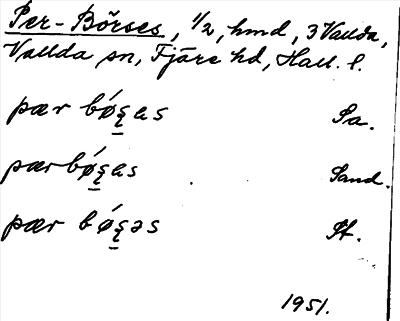 Per-Börses, 1/2, hmd, 3 Vallda,
Vallda sn, Fjäre hd, Hall. l.
pær bǿs̨as Sa.
pærbǿs̨as Sand.
pær bǿs̨əs St.
1951.